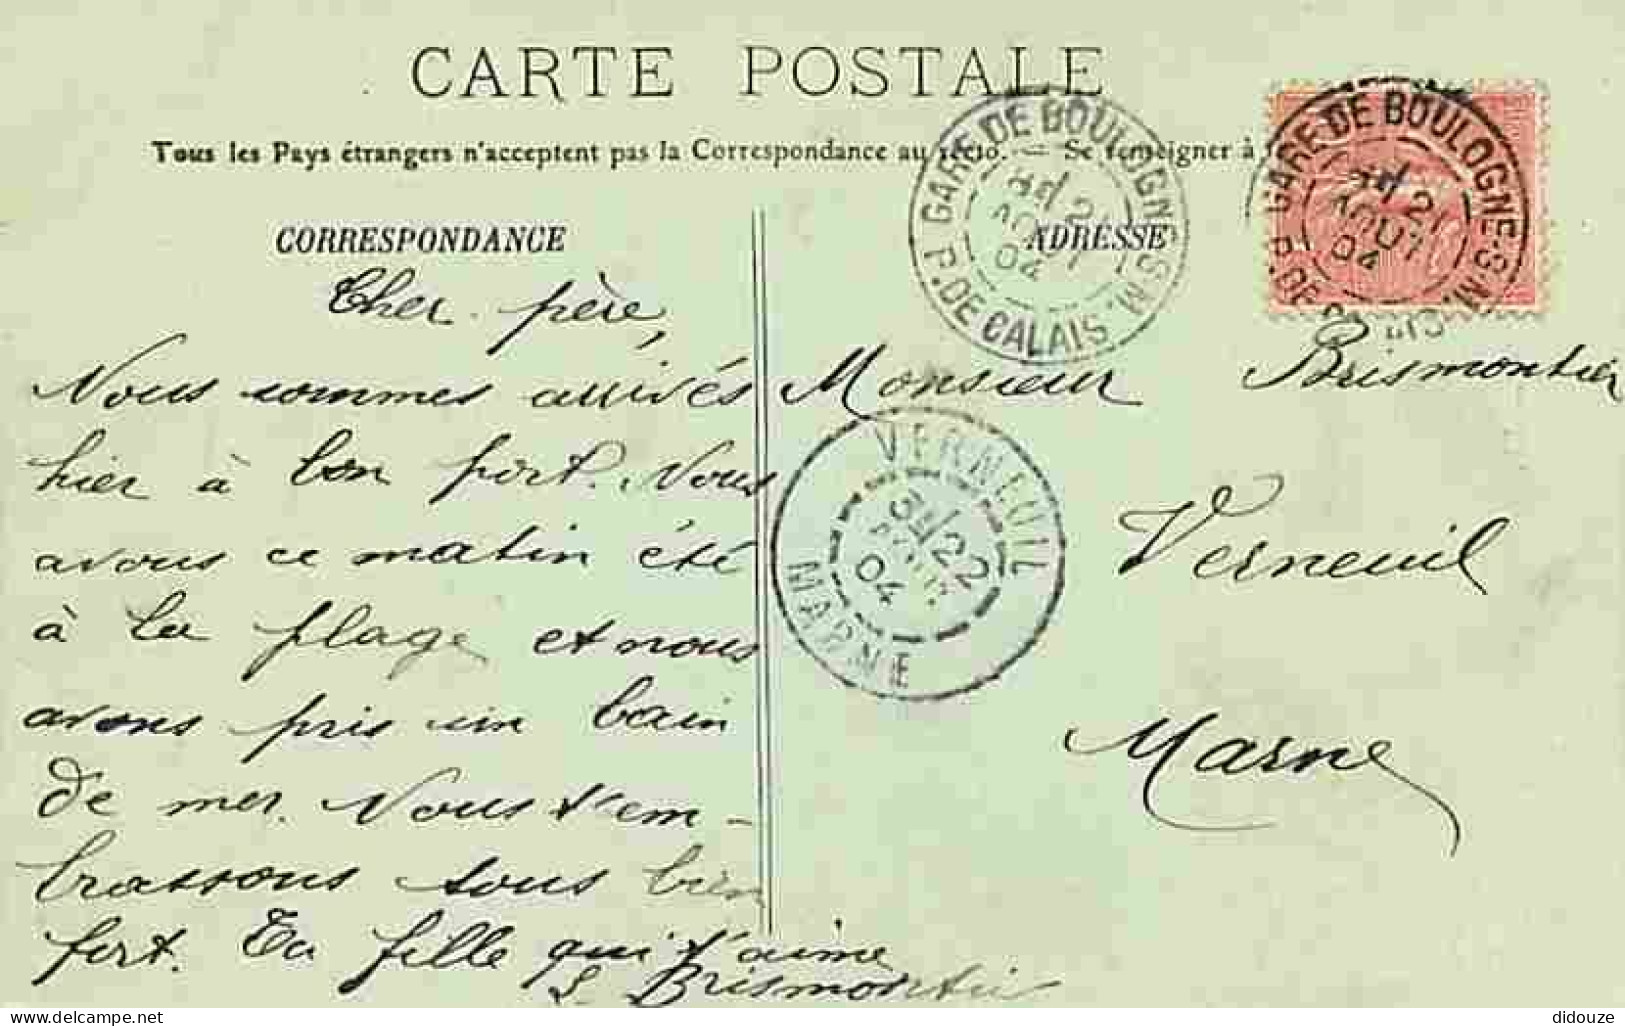 CARTE POSTALE
Tous les Pays étrangers n'acceptent pas la Correspondance au recto. — Se renseigner à
CORRESPONDANCE
Cher père,
Nous sommes arrivés
hier à bon port. Nous
avons ce matin été
à la plage et nous
avons pris un bain
de mer. Nous t'em-
brassons tous bien
fort. Ta fille qui t'aime
S. Brismontier
ADRESSE
Monsieur Brismontier
Verneuil
Marne
GARE DE BOULOGNE-S-M.
21
AOUT
04
P. DE CALAIS
GARE DE BOULOGNE-S-M.
21
AOUT
04
P. DE CALAIS
VERNEUIL
22
AOUT
04
MARNE
delcampe.net
didouze